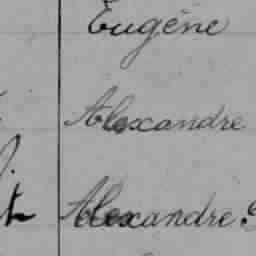 Eugène
Alexandre
Alexandre